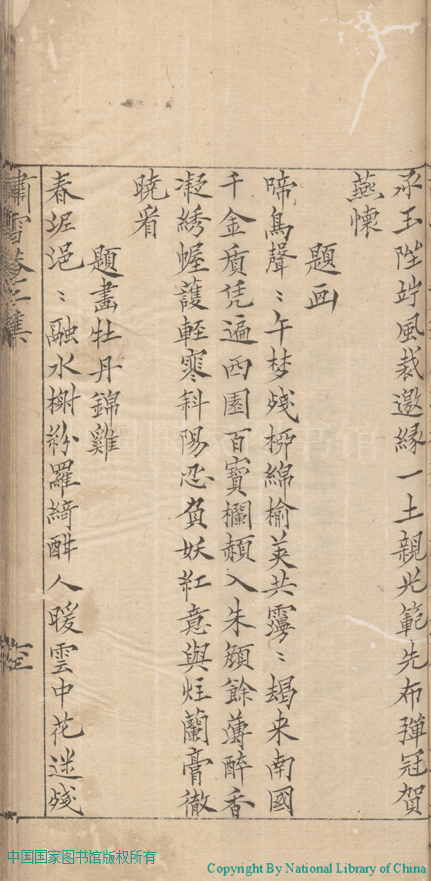 承玉陛竚風裁邀緣一土親光範先布彈冠賀
燕懷
題画
啼鳥聲〻午梦殘柳綿榆荚共霏〻朅来南國
千金質凭遍西園百寳欄頰入朱顏餘薄醉香
凝綉幄護輕寒斜陽恐負妖紅意與炷蘭膏徹
曉看
題畫牡丹錦雞
春堤浥〻融水榭粉羅綺酣人暖雲中花迷殘
嘯雪菴二集
中国国家图书馆版权所有
Copyright By National Library of China